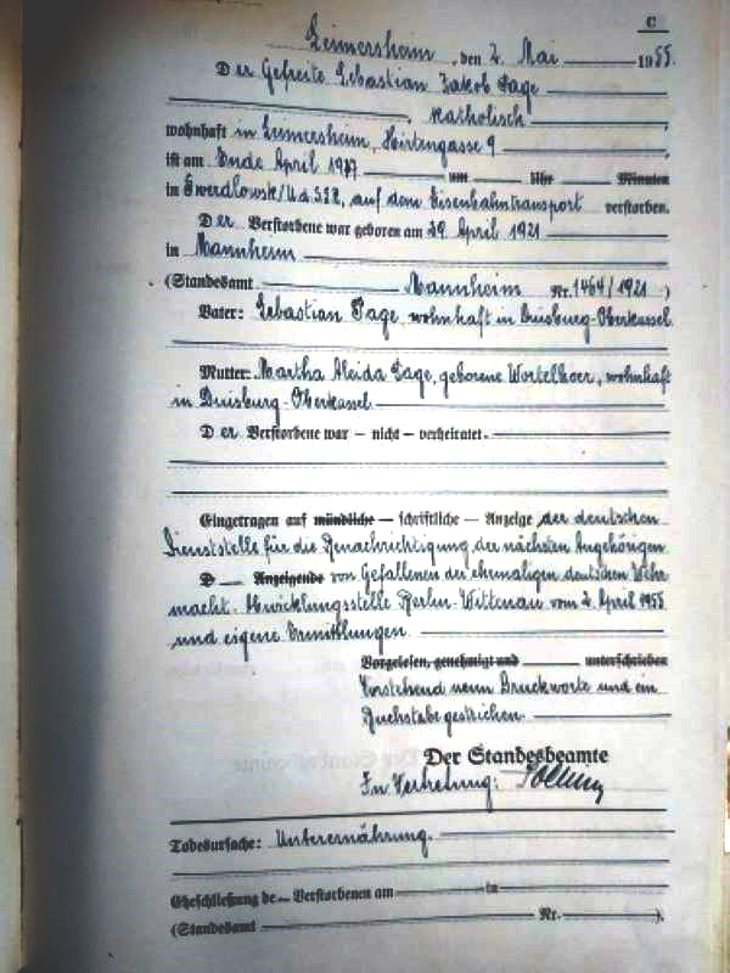 C
Leimersheim, den 2. Mai 1955.
Der Gefreite Sebastian Jakob Page
, katholisch,
wohnhaft in Leimersheim, Hirtengasse 9,
ist am Ende April 1947 um Uhr Minuten
in Swerdlowsk/UdSSR, auf dem Eisenbahntransport verstorben.
Der Verstorbene war geboren am 29. April 1921
in Mannheim
(Standesamt Mannheim Nr. 1464/1921)
Vater: Sebastian Page, wohnhaft in Duisburg-Oberkassel.
Mutter: Martha Aleida Page, geborene, wohnhaft
in Duisburg-Oberkassel.
Der Verstorbene war – nicht – verheiratet.
Eingetragen auf mündliche – schriftliche – Anzeige der deutschen
Dienststelle für die Benachrichtigung der nächsten Angehörigen
D Anzeigende von Gefallenen der ehemaligen deutschen Wehr
macht. Abwicklungsstelle Berlin-Wittenau vom 2. April 1955
und eigene Ermittlungen.
Vorgelesen, genehmigt und unterschrieben
Vorstehend neun Druckworte und ein
Buchstabe gestrichen.
Der Standesbeamte
In Vertretung:
Todesursache: Unterernährung.
Eheschließung de Verstorbenen am in
(Standesamt Nr. ).